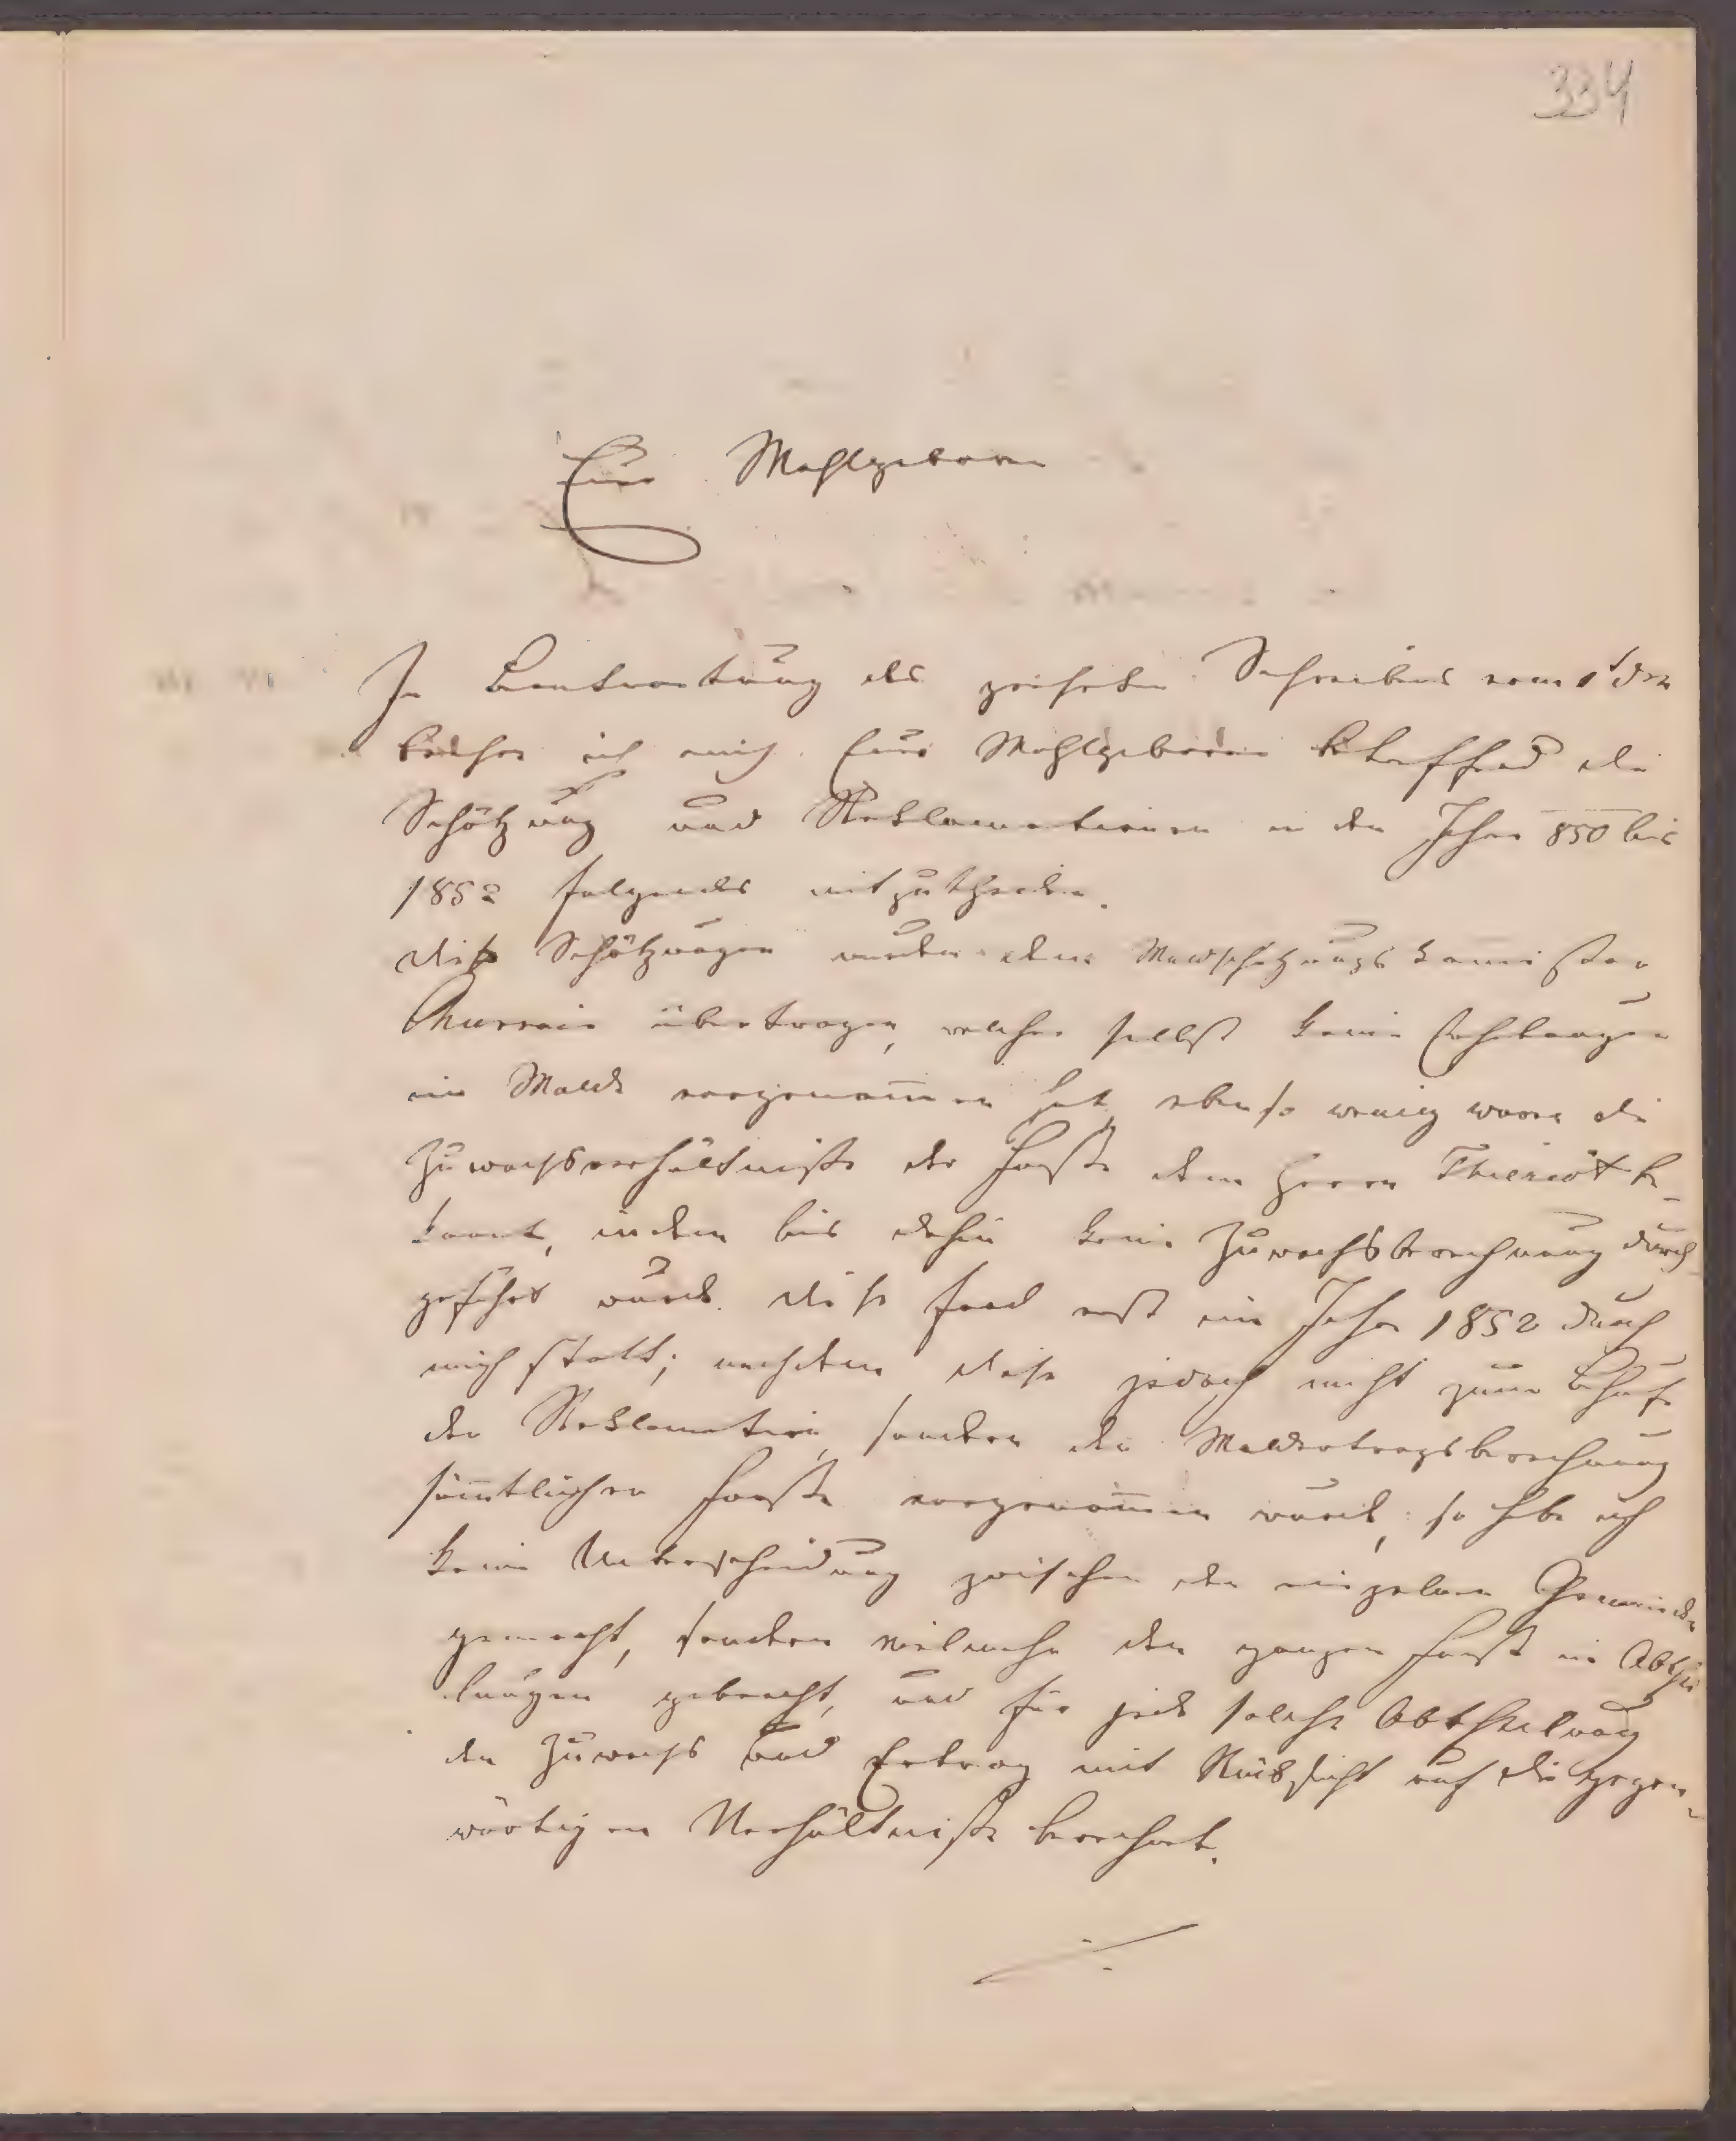 334
Euer Wohlgeboren
In Beantwortung des geehrten Schreibens vom 1t dM
beehre ich mich Euer Wohlgeboren betreffend die
Schätzung und Reklamationen in den Jahren 850 bis
1852 folgendes mitzutheilen.
diese Schätzungen wurden dem Waldschätzungskommissär
übertragen, welcher selbst keine Erhebungen
im Walde vorgenom̄en hat, ebenso wenig waren die
Zuwachsverhältniße der Forste dem Herrn Thieriot be-
kannt, indem bis dahin keine Zuwachsberechnung durch
geführt wurde. diese fand erst im Jahre 1852 durch
mich statt; nachdem diese jedoch nicht zum Behufe
der Reklamation, sondern der Waldertragsberechnung
säm̄tlicher Forste vorgenom̄en wurde, so habe ich
keine Unterscheidung zwischen den einzelnen Gemeinden
gemacht, sondern vielmehr den ganzen Forst in Abthei
lungen gebracht, und für jede solche Abtheilung
den Zuwachs und Ertrag mit Rücksicht auf die gegen-
wärtigen Verhältniße berechnet.